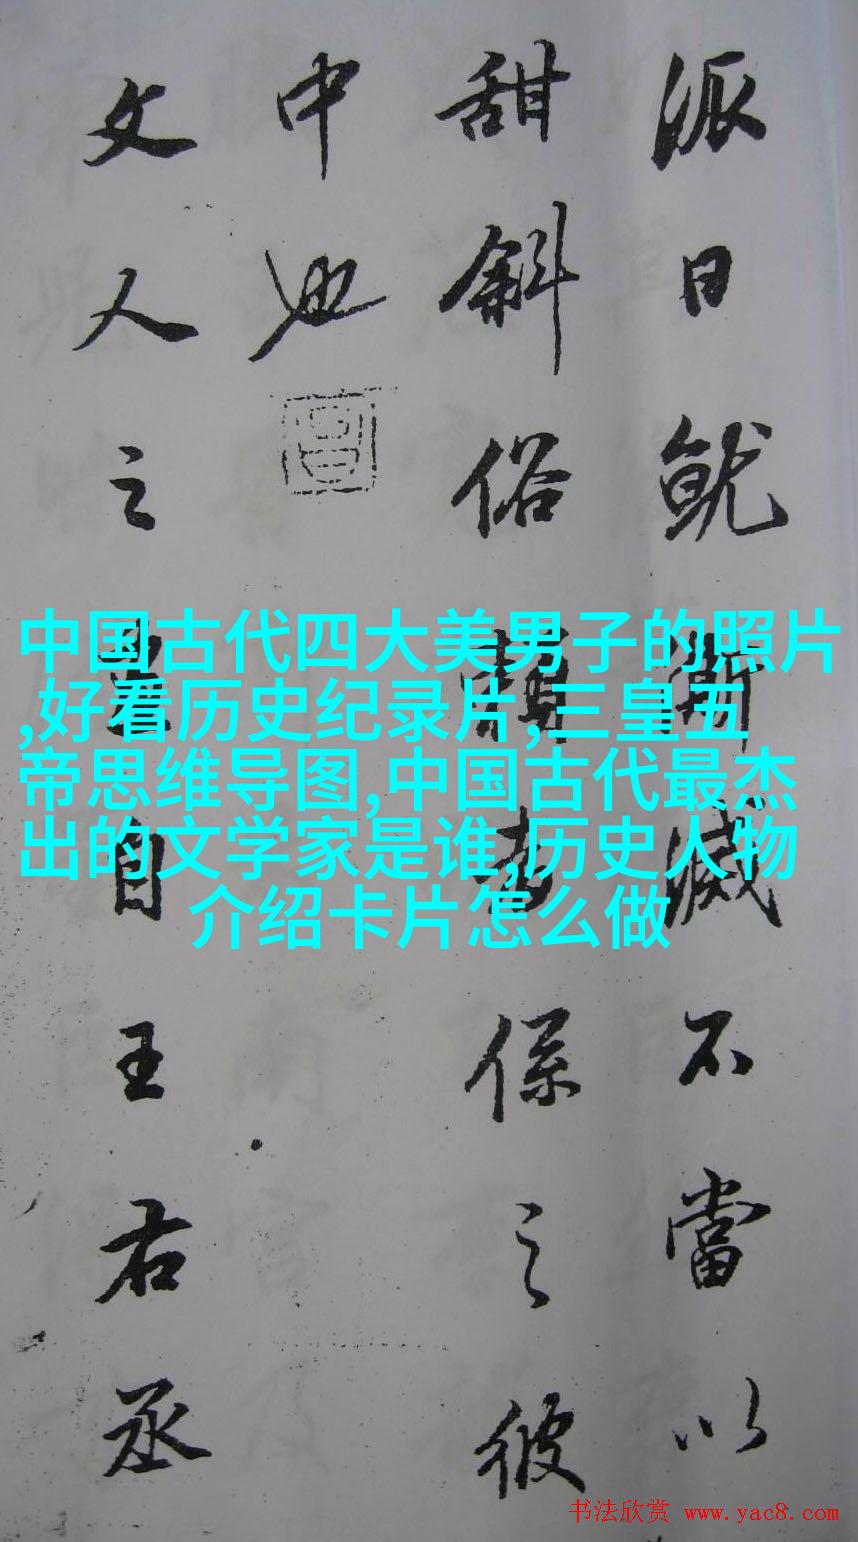 派日就澌滅不當以
甜斜俗賴者係之彼
中也
文人之畫自王右丞
中国古代四大美男子的照片
,好看历史纪录片,三皇五
帝思维导图,中国古代最杰
出的文学家是谁,历史人物
介绍卡片怎么做
书法欣赏 www.yac8.com